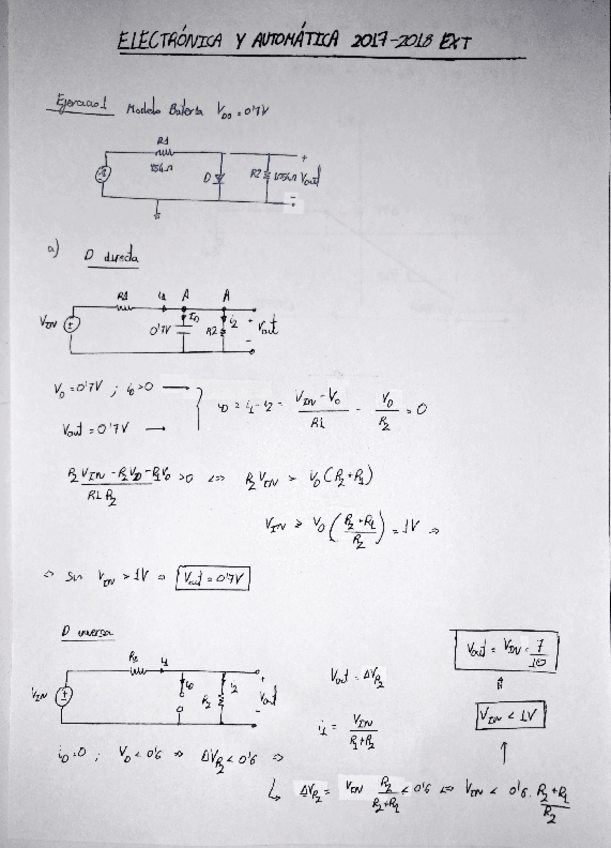 ELECTRÓNICA Y AUTOMÁTICA 2017-2018 EXT
Ejercicio 1 Modelo Batería V_D0 = 0'7V
R1
D R2 Vout
+
-
a) D directa
R1 i1 A A
V_IN 0'7V I_D R2 i2 Vout
+
-
V_D = 0'7V ; i_D > 0 →
i_D = i1 - i2 = (V_IN - V_D)/R1 - V_D/R2 = 0
Vout = 0'7V →
(R2 V_IN - R2 V_D - R1 V_D)/(R1 R2) > 0 <=> R2 V_IN > V_D (R2 + R1)
V_IN > V_D ((R2 + R1)/R2) = 1V ⇒
⇒ V_IN > 1V ⇒ Vout = 0'7V
D inversa
Vout = V_IN · 7/10
i1
V_IN i_D R2 i2 Vout
+
-
Vout = ΔV_R2
i1 = V_IN/(R1 + R2)
V_IN < 1V
i_D = 0 ; V_D < 0'6 ⇒ ΔV_R2 < 0'6 ⇒
ΔV_R2 = V_IN R2/(R2 + R1) < 0'6 <=> V_IN < 0'6 · (R2 + R1)/R2